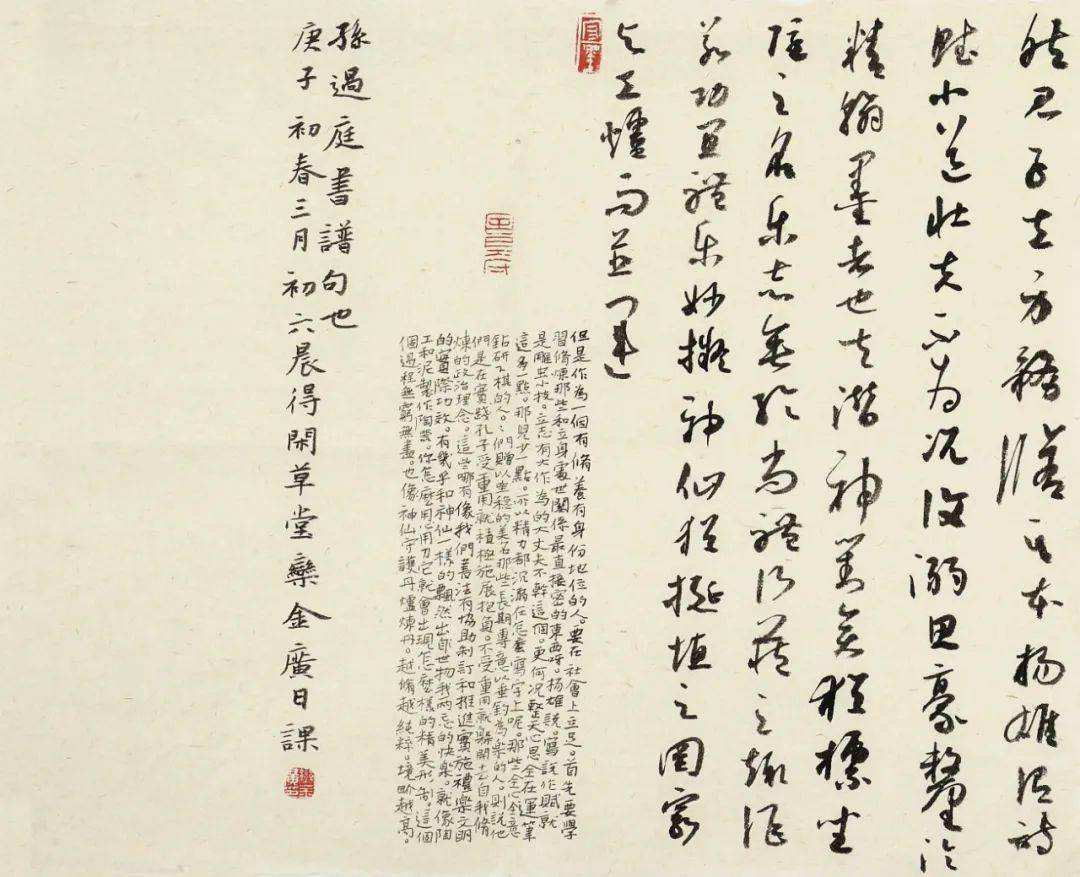 然君子立身務脩其本揚雄謂詩
賦小道壯夫不為況復溺思豪釐淪
精翰墨者也夫潛神對奕猶標坐
隱之名樂志垂綸尚體行藏之趣詎
若功宣禮樂妙擬神仙猶埏埴之罔窮
與工爐而並運
但是作為一個有脩養有身份地位的人。要在社會上立足。首先要學
習脩煉那些和立身處世關係最直接密的東西呀。楊雄說。寫說作賦就
是雕虫小技。立志有大作為的大丈夫不幹這個。更何況整天心思全在運筆
這多一點。那見少一點。所以精力都沉溺在怎麼寫字上呢。那些全心全意
鉆研下棋的人。人們贈以坐穩的美名那些長期專意以垂釣為樂的人。則說他
們是在實踐孔子受重用就積極施展抱負。不受重用就躲開去自我脩
煉的政治理念。這些哪有像我們書法有協助制訂和推進實施禮樂文明
的實際功效。有幾乎和神仙一樣的飄然出世物我兩忘的快樂。就像陶
工和泥製作陶瓷。你怎麼用心用力它就會出現怎麼樣的精美形制。這個
個過程無窮無盡。也像神仙守護丹爐煉丹。越脩越純粹。境界越高。
孫過庭書譜句也
庚子初春三月初六晨得閑草堂欒金廣日課